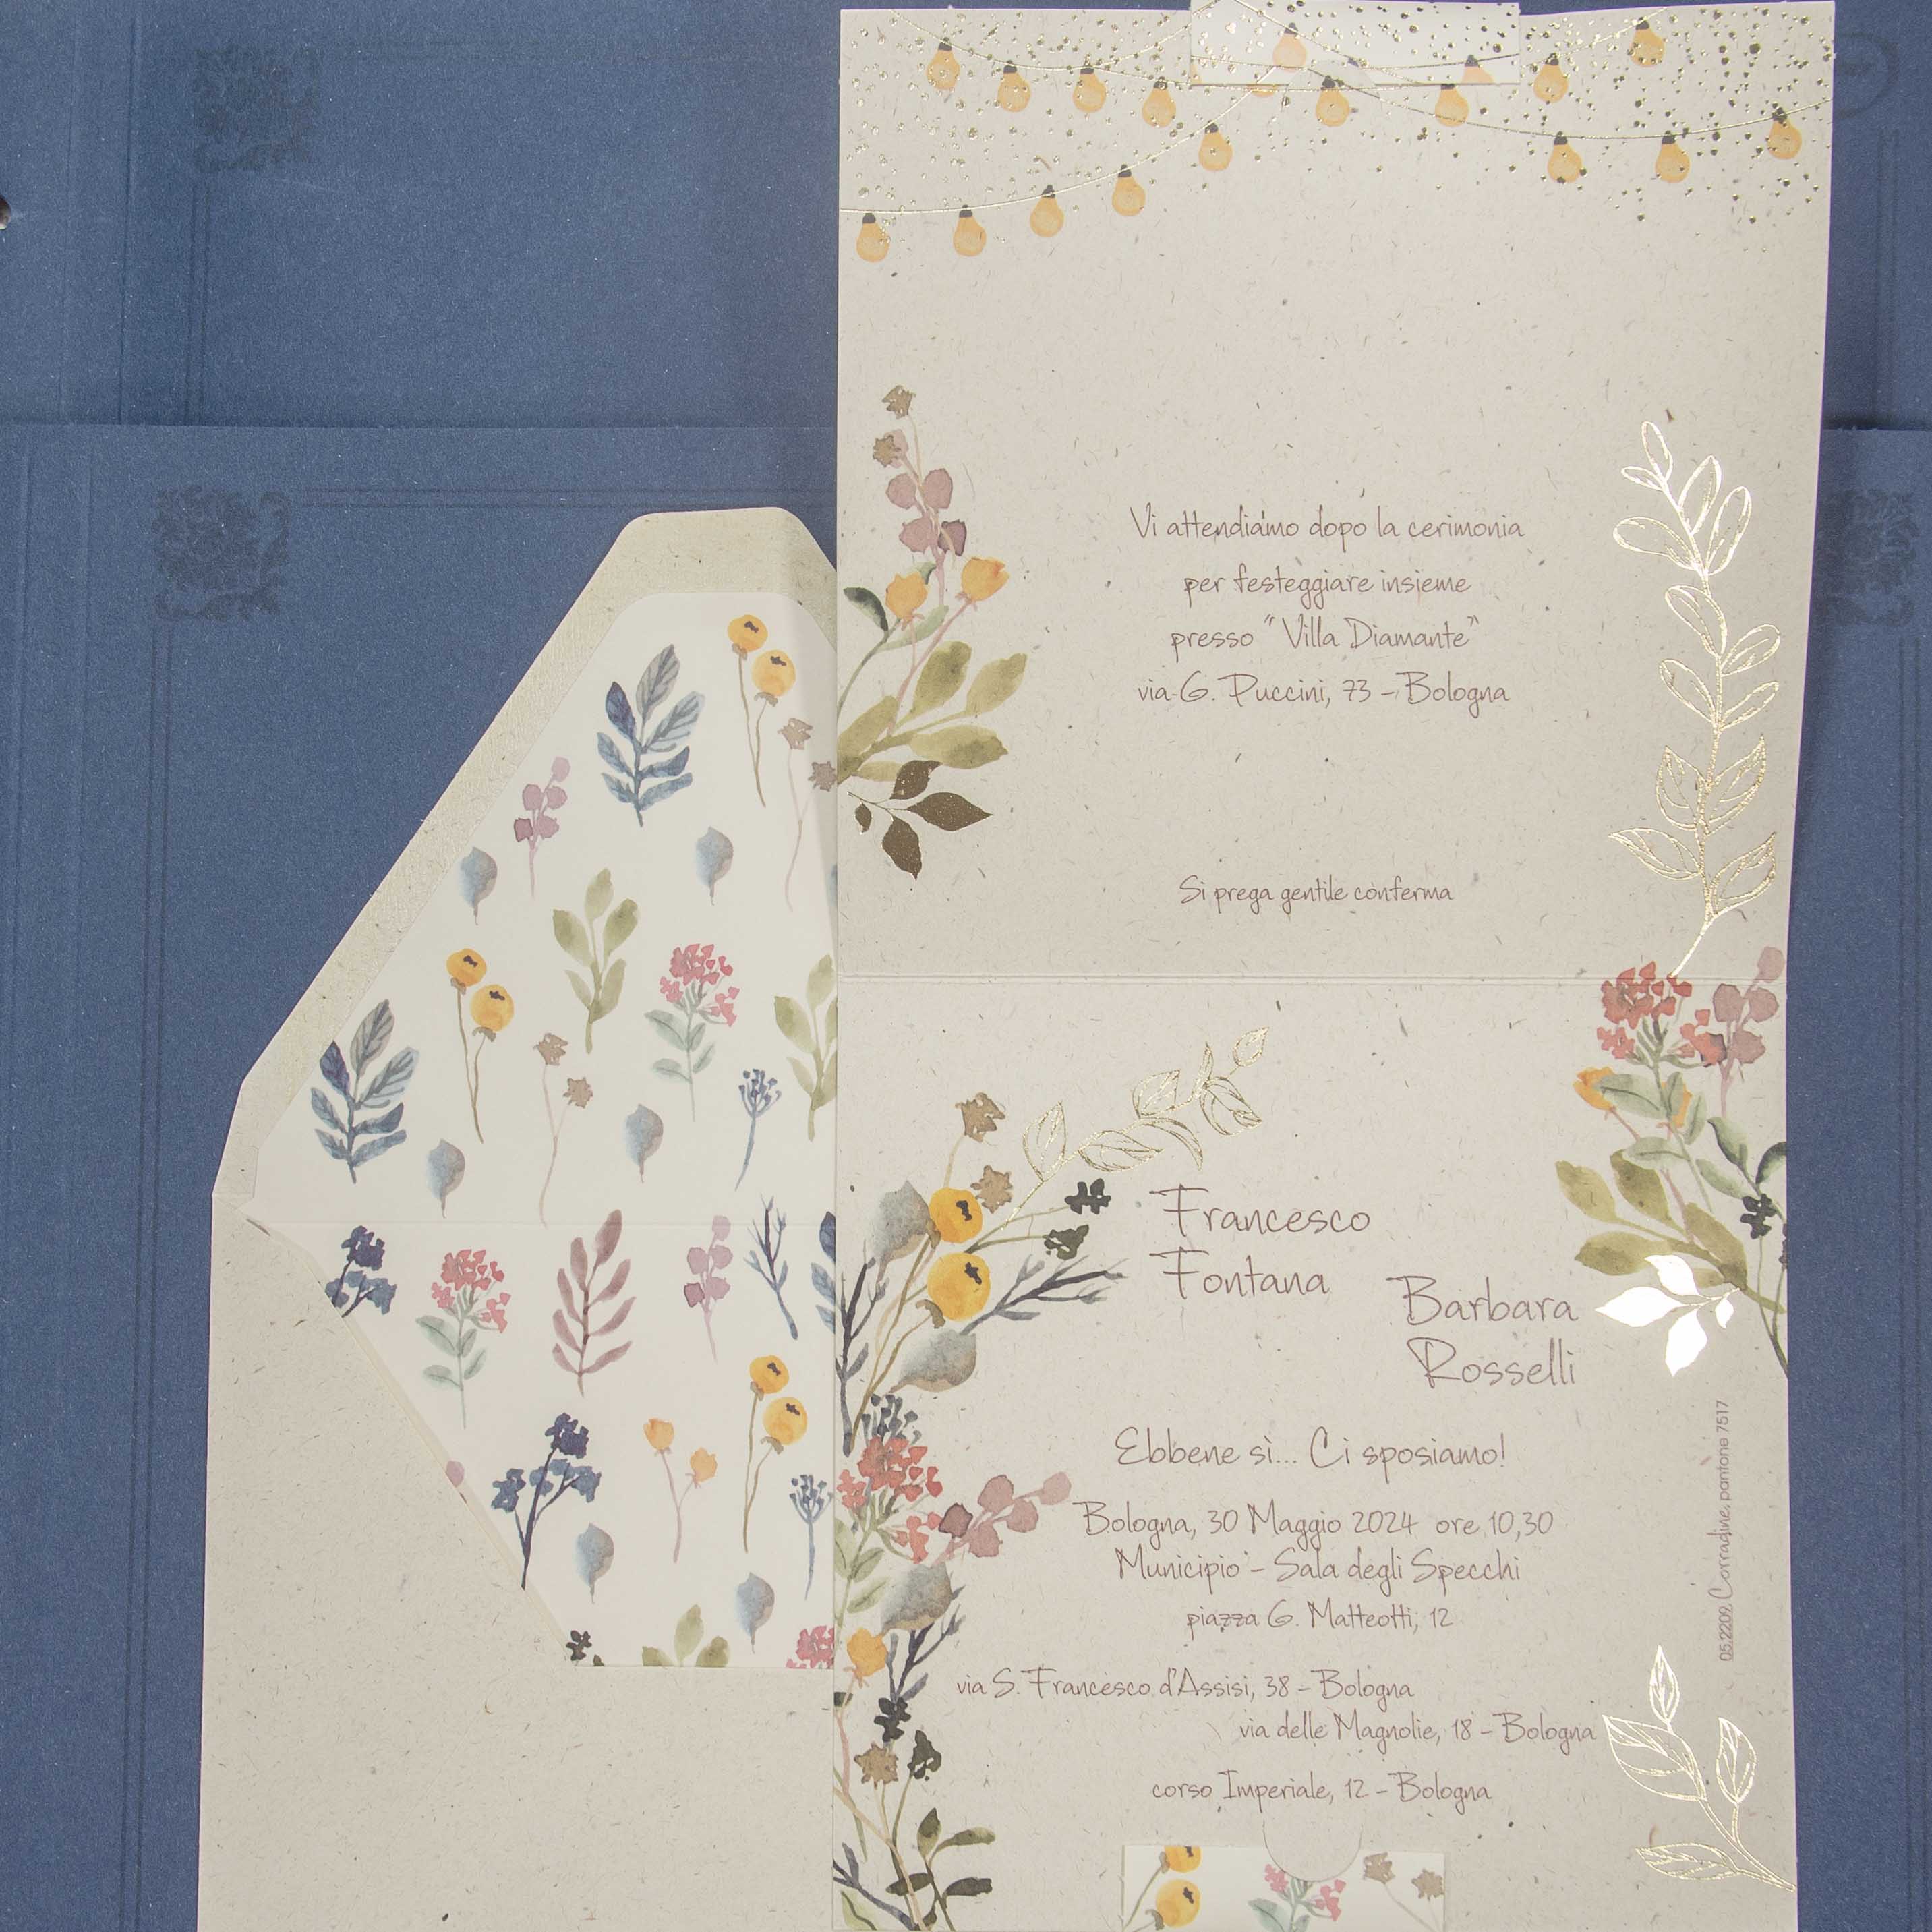 Vi attendiamo dopo la cerimonia
per festeggiare insieme
presso "Villa Diamante"
via G. Puccini, 73 - Bologna
Si prega gentile conferma
Francesco
Fontana
Barbara
Rosselli
Ebbene sì... Ci sposiamo!
Bologna, 30 Maggio 2024 ore 10,30
Municipio - Sala degli Specchi
piazza G. Matteotti, 12
via S. Francesco d'Assisi, 38 - Bologna
via delle Magnolie, 18 - Bologna
corso Imperiale, 12 - Bologna
05.2209, Corradine, pantone 7517